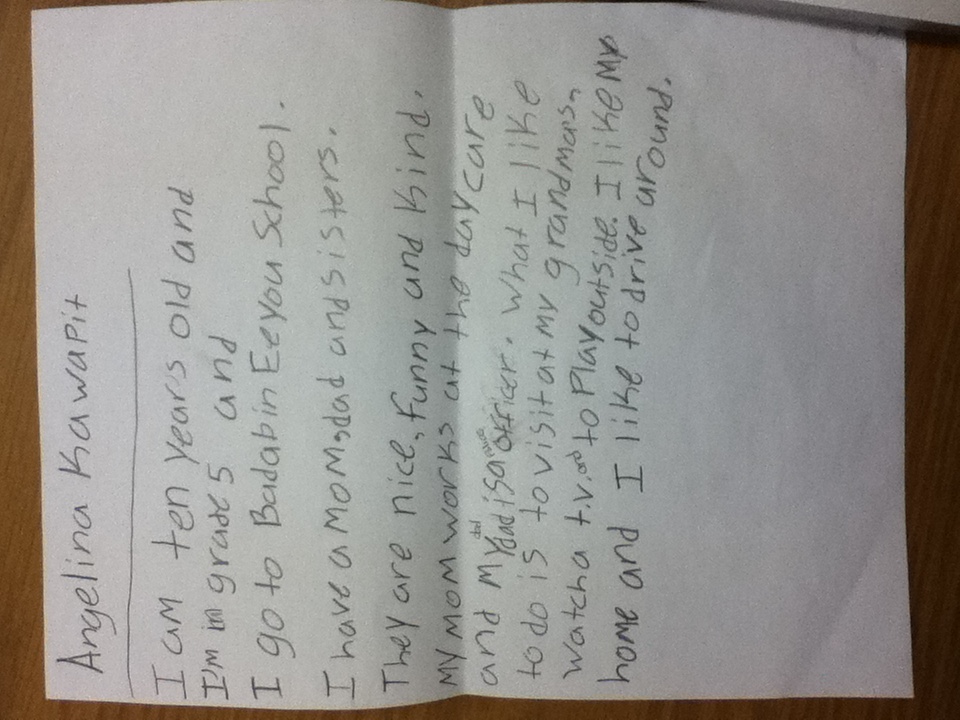 Angelina Kawapit
I am ten years old and
I'm in grade 5 and
I go to Badabin Eeyou School.
I have a mom, dad and sisters.
They are nice, funny and kind.
My mom works at the daycare
and my dad is a police officer. What I like
to do is to visit at my grandma's,
watch a t.v. and to play outside. I like my
home and I like to drive around.